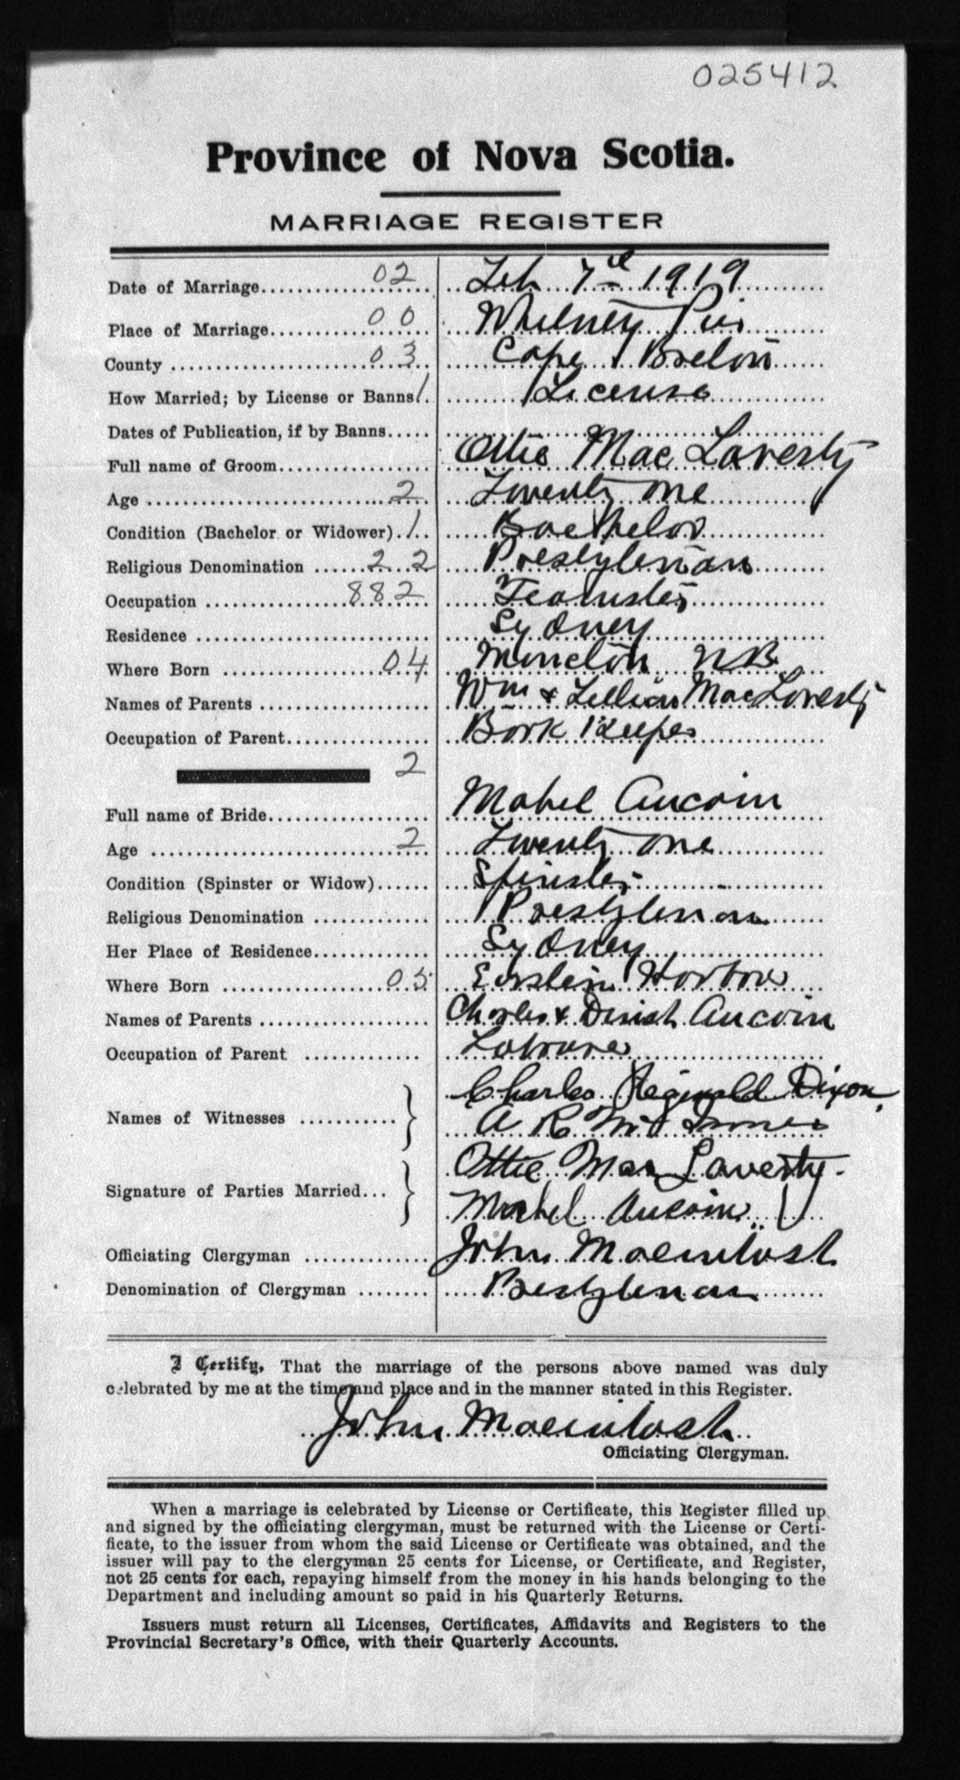 025412
Province of Nova Scotia.
MARRIAGE REGISTER
Date of Marriage 02 Feb 7th 1919
Place of Marriage 00 Whitney Pier
County 03 Cape Breton
How Married; by License or Banns 1 License
Dates of Publication, if by Banns
Full name of Groom Ottie MacLaverty
Age 2 Twenty one
Condition (Bachelor or Widower) 1 Bachelor
Religious Denomination 2 2 Presbyterian
Occupation 882 Teamster
Residence Sydney
Where Born 04 Moncton NB
Names of Parents Wm & Lillian MacLaverty
Occupation of Parent Book Keeper
2
Full name of Bride Mabel Aucoin
Age 2 Twenty one
Condition (Spinster or Widow) Spinster
Religious Denomination Presbyterian
Her Place of Residence Sydney
Where Born 05 Harbour
Names of Parents Charles & Aucoin
Occupation of Parent Labourer
Names of Witnesses Charles Reginald Dixon
A R
Signature of Parties Married Ottie MacLaverty
Mabel Aucoin
Officiating Clergyman John Macintosh
Denomination of Clergyman Presbyterian
I Certify, That the marriage of the persons above named was duly
celebrated by me at the time and place and in the manner stated in this Register.
John Macintosh
Officiating Clergyman.
When a marriage is celebrated by License or Certificate, this Register filled up
and signed by the officiating clergyman, must be returned with the License or Certi-
ficate, to the issuer from whom the said License or Certificate was obtained, and the
issuer will pay to the clergyman 25 cents for License, or Certificate, and Register,
not 25 cents for each, repaying himself from the money in his hands belonging to the
Department and including amount so paid in his Quarterly Returns.
Issuers must return all Licenses, Certificates, Affidavits and Registers to the
Provincial Secretary's Office, with their Quarterly Accounts.